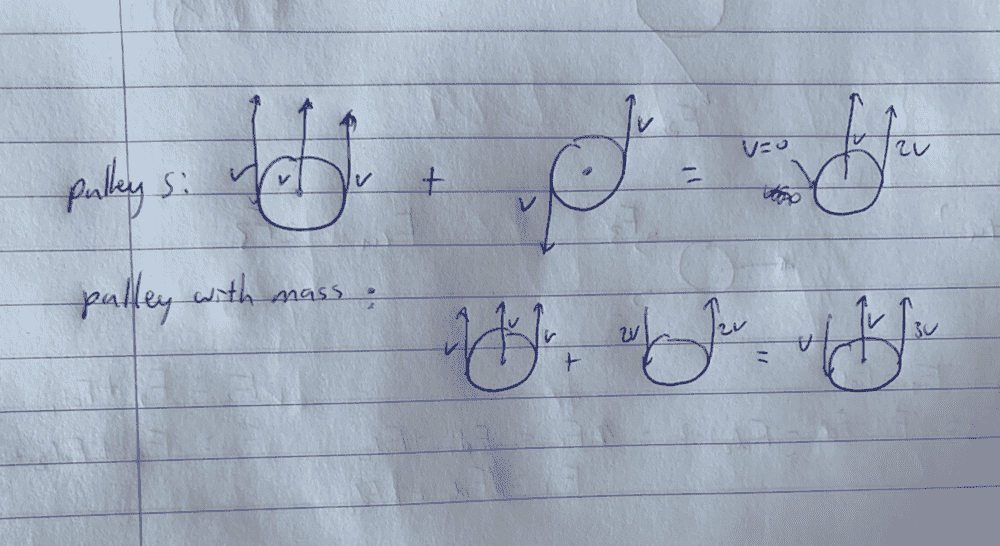 pulley s:
v v v + v v = v=0 v 2v
pulley with mass:
v v v + 2v 2v = v v 3v